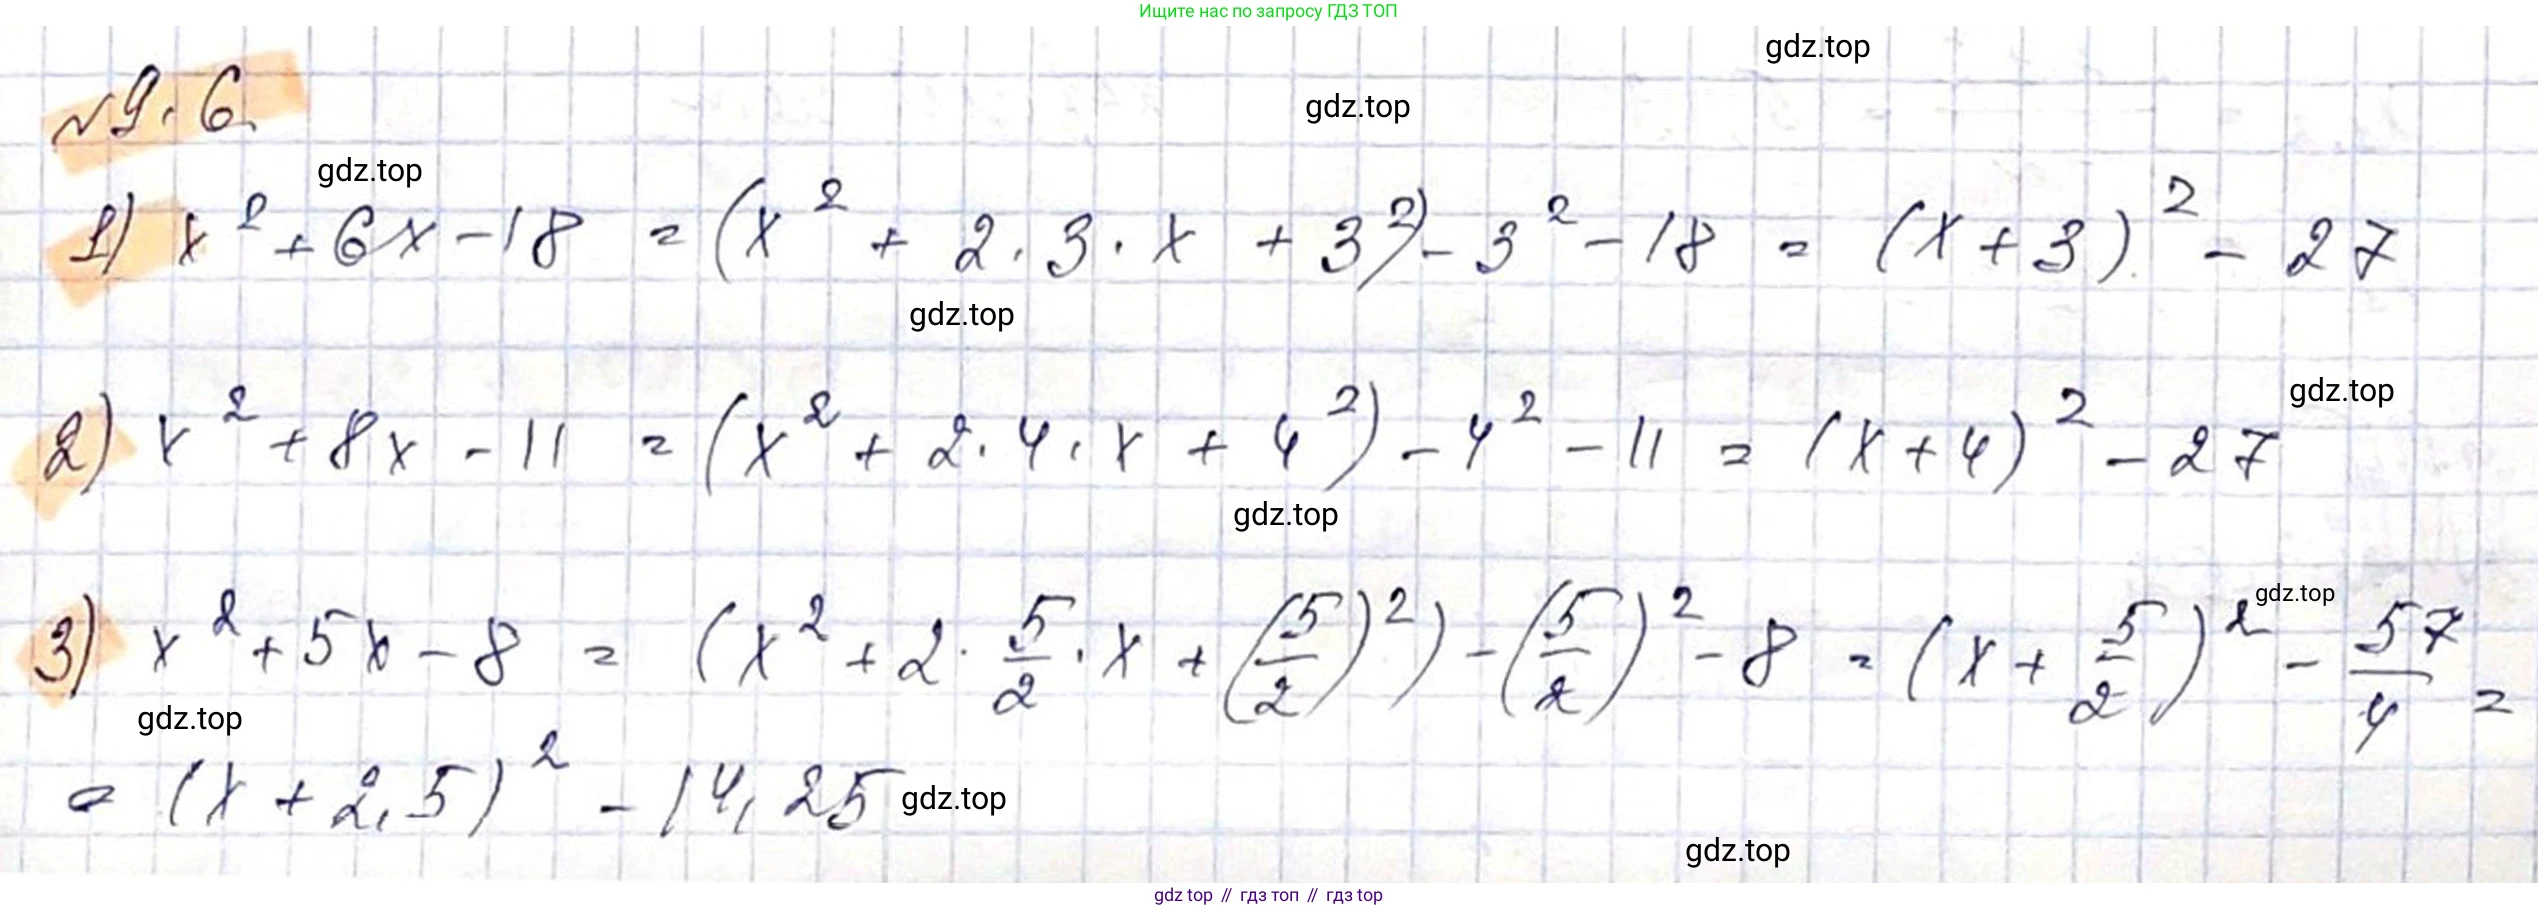 Ищите нас по запросу ГДЗ ТОП
gdz.top
gdz.top
№ 9.6
gdz.top
1) x² + 6x - 18 = (x² + 2 · 3 · x + 3²) - 3² - 18 = (x + 3)² - 27
gdz.top
gdz.top
2) x² + 8x - 11 = (x² + 2 · 4 · x + 4²) - 4² - 11 = (x + 4)² - 27
gdz.top
gdz.top
3) x² + 5x - 8 = (x² + 2 · 5/2 · x + (5/2)²) - (5/2)² - 8 = (x + 5/2)² - 57/4 =
gdz.top
= (x + 2,5)² - 14,25
gdz.top
gdz.top
gdz top // гдз топ // гдз top